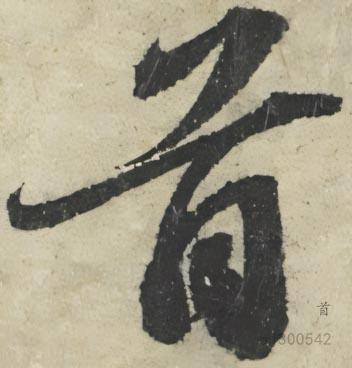 首
首
300542